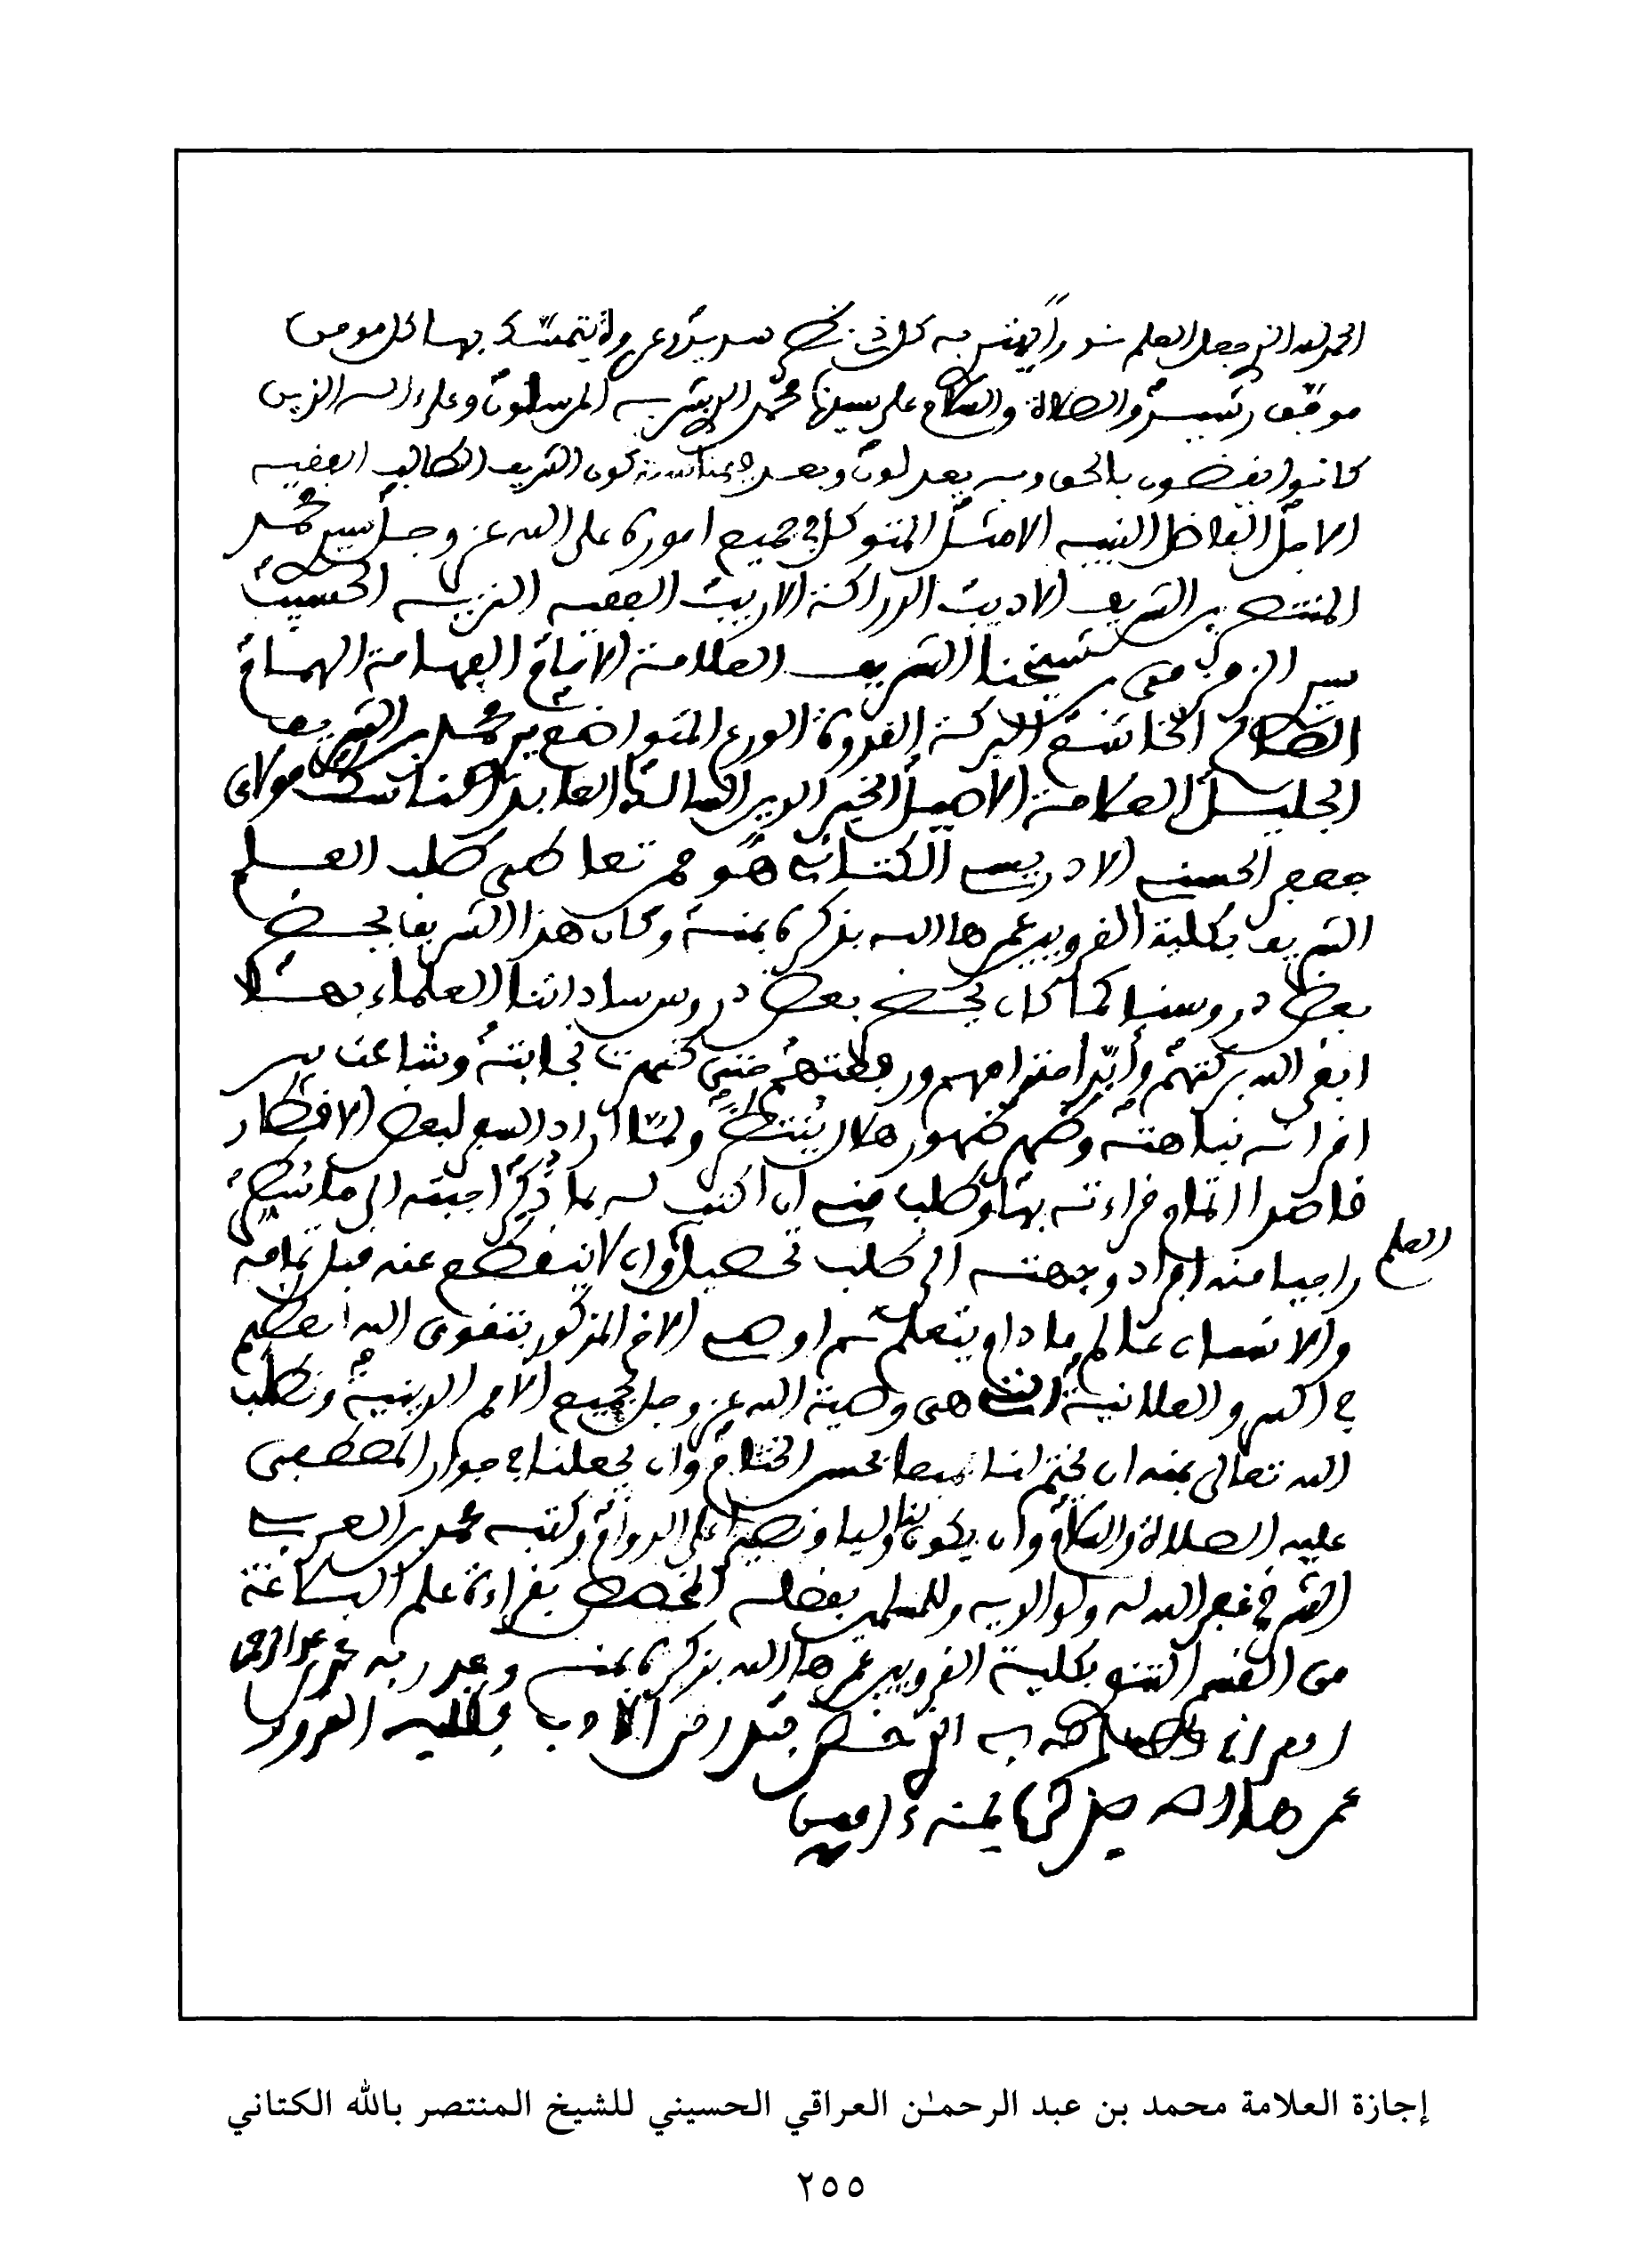 الحمد لله الذي جعل العلم نورا يهتدي به كل ذي نظر سديد وعروة يتمسك بها كل مومن
موفق رشيد والصلاة والسلام على سيدنا محمد الذي بشر به المرسلون وعلى ءاله الذين
كانوا يقضون بالحق وبه يعدلون وبعد كون الشريف الطالب الفقيه
الاجل الفاضل النبيه الامثل المتوكل في جميع اموره على الله عز وجل سيدي محمد
المنتصر بن الشريف الاديب الدراكة الاريب الفقيه النزيه الحسيب
سيدي الزمزمي بن شيخنا الشريف العلامة الامام الفهامة الهمام
الصالح الخاشع البركة القدوة الورع المتواضع سيدي محمد بن الشريف
الجليل العلامة الاصيل الخير الدين السالك العابد الناسك مولاي
جعفر الحسني الادريسي الكتاني هو ممن تعاطى طلب العلم
الشريف بكلية القرويين عمرها الله بذكره بمنه وكان هذا الشريف يحضر
بعض دروسنا كما كان يحضر بعض دروس ساداتنا العلماء بهـا
ابقى الله بركتهم وأبد احترامهم ورفعتهم حتى ظهرت نجابته وشاعت بين
اقرانه نباهته وظهر ظهور هلال ولما أراد السفر لبعض الاقطار
قاصدا اتمام قراءته بها وطلب مني ان اكتب له بما ذكر اجبته الى ما
راجيا منه افراد وجهته الى طلب تحصيل العلم وان لا ينقطع عنه قبل تمامه
والانسان عالم ما دام يتعلم ثم اوصي الاخ المذكور بتقوى الله العظيم
في السر والعلانية التي هي وصية الله عز وجل لجميع الامم الدينية ونطلب
الله تعالى بمنه ان يختم لنا جميعا بحسن الختام وان يجعلنا في جوار المصطفى
عليه الصلاة والسلام وان يكون لنا وليا ونصيرا على الدوام وكتبه محمد بن العربي
الله له ولوالديه وللمسلمين بفضله المخصص بقراءة علم البلاغة
من القسم بكلية القرويين عمرها الله بذكره بمنه وعبد ربه محمد بن عبد الرحمن
العراقي الادب بكلية القرويين
عمرها الله بذكره بمنه ءامين
إجازة العلامة محمد بن عبد الرحمـٰن العراقي الحسيني للشيخ المنتصر بالله الكتاني
٢٥٥